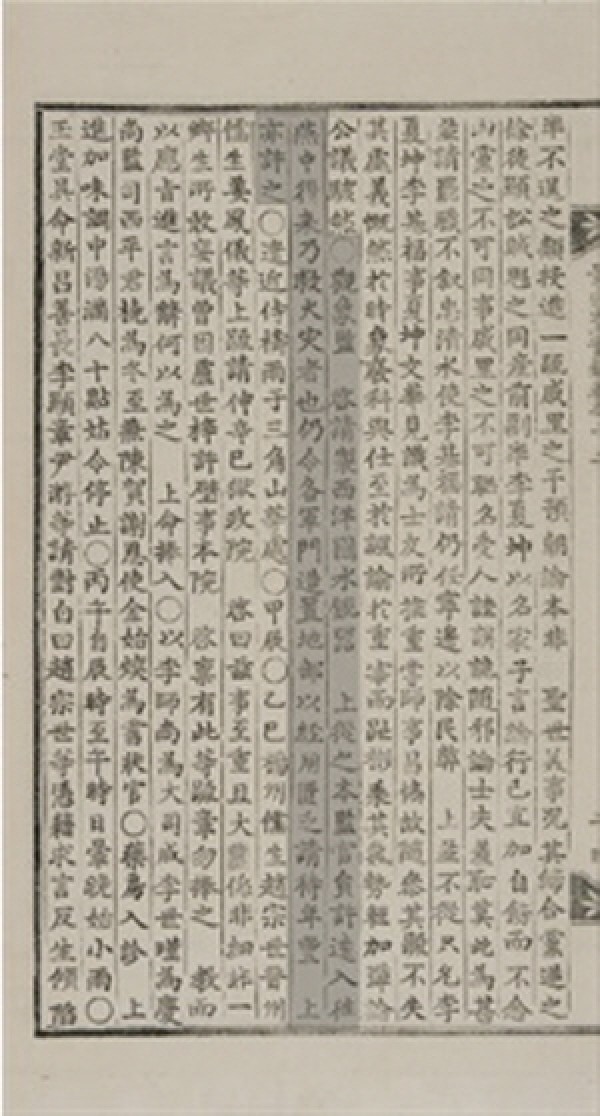 不遑之類投進一疏戚里之干預朝論本非 聖世美事況其締合黨邊之
徐徒頤訟賊之同產前副率李夏坤以名家子言論行己宜加自飭而不念
山黨之不可同事戚里之不可聯名受人詿誤詭隨邪論士夫羞恥莫此為甚
並請罷職不敘忠清水使李基福請仍任寧邊以除民弊 上並不從只允李
夏坤李基福事夏坤文華見識為士友所推重嘗師事昌協故隨參其不失
其處義慨然於時象廢科與仕至於諷諭於重宰而趾彬乘其氣勢輕加彈論
公議駭然○觀象監 啓請製西洋國水銃器 上從之本監官員許遠入往
燕中得來乃救火災者也仍令各軍門造置地部以經用匱乏請待年豐 上
亦許之○遣近侍禱雨于三角山等處○甲辰○乙巳楊州儒生趙宗世晉州
儒生姜鳳儀等上疏請伸辛巳獄政院 啓曰玆事至重且大關係非細一
鄉生所敢妄議曾因盧世許璧事本院 啓稟有此等疏章勿捧之 敎而
以應旨進言為辭何以為之 上命捧入○以李師尚為大司成李世瑾為慶
尚監司西平君橈為冬至兼陳賀謝恩使金始煥為書狀官○藥房入診 上
進加味調中湯滿八十點姑令停止○丙午自辰時至午時日暈晚始小雨○
玉堂具命新呂善長李顯章尹游等請對白曰趙宗世等憑藉求言反生傾陷